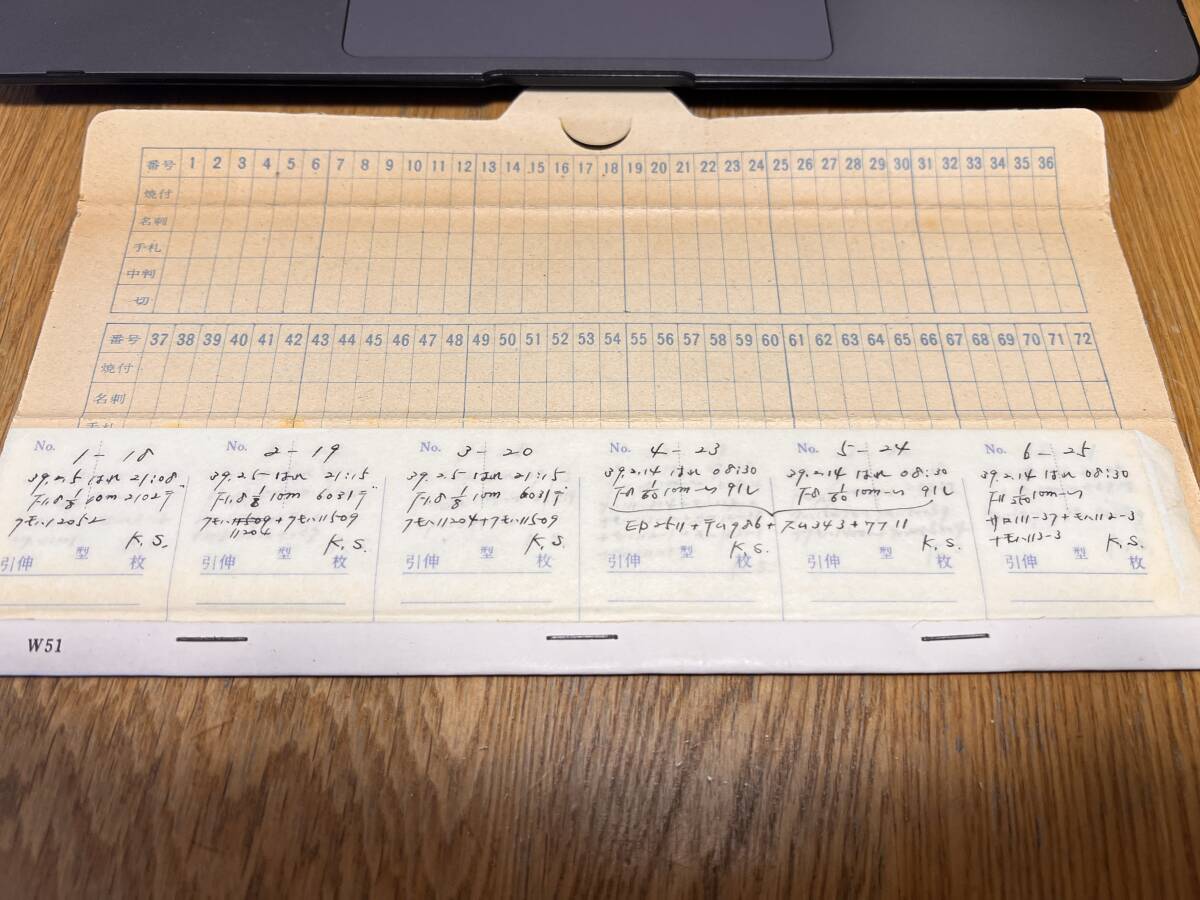 番号 1 2 3 4 5 6 7 8 9 10 11 12 13 14 15 16 17 18 19 20 21 22 23 24 25 26 27 28 29 30 31 32 33 34 35 36
焼付
名刺
手札
中判
切
番号 37 38 39 40 41 42 43 44 45 46 47 48 49 50 51 52 53 54 55 56 57 58 59 60 61 62 63 64 65 66 67 68 69 70 71 72
焼付
名刺
手札
No. 1-18
39.2.5 はれ 21:08
F1.8 1/8 10m 2102デ
クモハ12052
K.S.
引伸 型 枚
No. 2-19
39.2.5 はれ 21:15
F1.8 1/8 10m 6031デ
クモハ11509+クモハ11509
11204
K.S.
引伸 型 枚
No. 3-20
39.2.5 はれ 21:15
F1.8 1/8 10m 6031デ
クモハ11204+クモハ11509
K.S.
引伸 型 枚
No. 4-23
39.2.14 はれ 08:30
F8 1/60 10m〜∞ 91レ
No. 5-24
39.2.14 はれ 08:30
F8 1/60 10m〜∞ 91レ
ED2511+テム986+スム343+7711
K.S.
引伸 型 枚
K.S.
引伸 型 枚
No. 6-25
39.2.14 はれ 08:30
F11 1/250 10m〜∞
サロ111-37+モハ112-3
+モハ113-3
K.S.
引伸 型 枚
W51